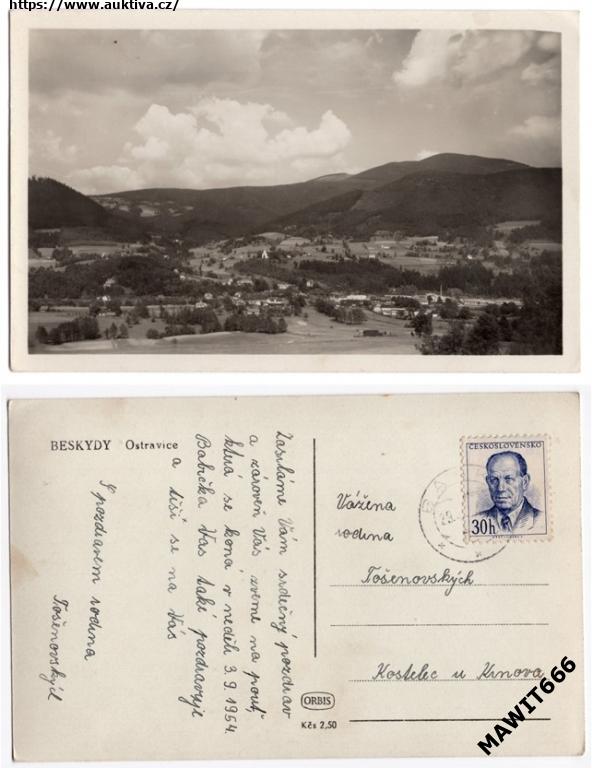 https://www.auktiva.cz/
BESKYDY Ostravice
Zasíláme Vám srdečný pozdrav
a zároveň Vás zveme na pouť,
která se koná v neděli 5.9.1954.
Babička Vás také pozdravuje
a těší se na Vás
S pozdravem rodina
Tošenovských
ORBIS
Kčs 2,50
ČESKOSLOVENSKO
30h
29.
Vážená
rodina
Tošenovských
Kostelec u Krnova
MAWIT666